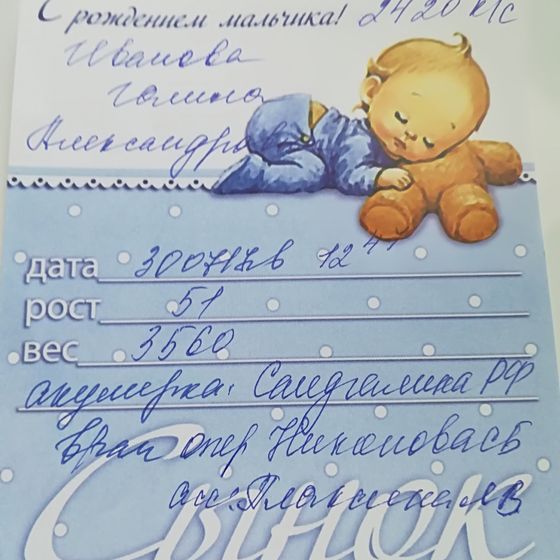 С рождением мальчика! 2420 к/с
Иванова
Галина
Александровна
дата 300717 в 12 47
рост 51
вес 3560
акушерка: Саидгалина РФ
врач опер Никонова СБ
Сынок